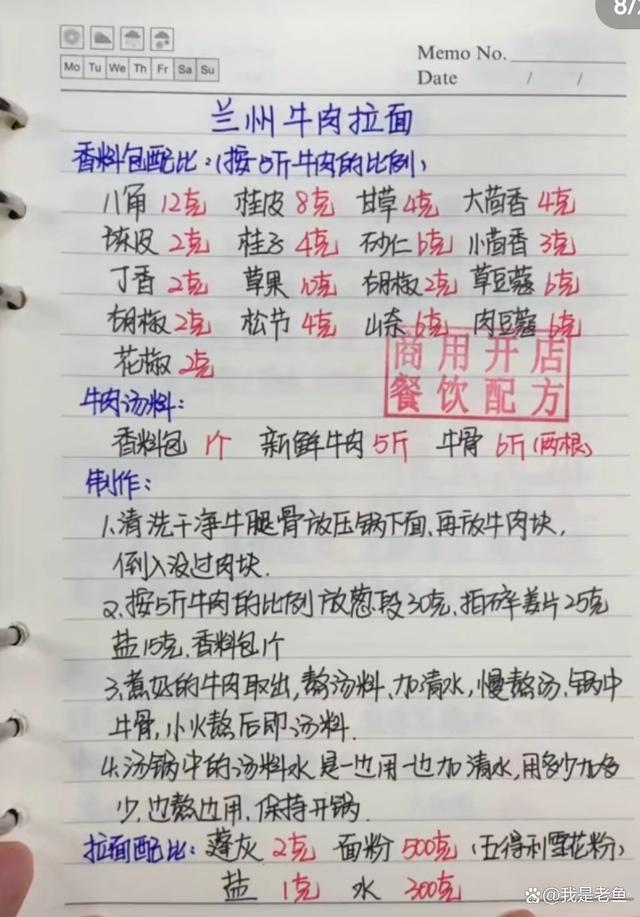 8/
Mo Tu We Th Fr Sa Su
Memo No.
Date / /
兰州牛肉拉面
香料包配比:(按5斤牛肉的比例)
八角 12克 桂皮 8克 甘草 4克 大茴香 4克
陈皮 2克 桂子 4克 砂仁 6克 小茴香 3克
丁香 2克 草果 10克 胡椒 2克 草豆蔻 6克
胡椒 2克 松节 4克 山奈 6克 肉豆蔻 6克
花椒 2克
商用开店
餐饮配方
牛肉汤料:
香料包 1个 新鲜牛肉 5斤 牛骨 6斤(两根)
制作:
1.清洗干净牛腿骨放压锅下面,再放牛肉块,
倒入没过肉块.
2.按5斤牛肉的比例放葱段30克,拍碎姜片25克
盐15克,香料包1个
3.煮好的牛肉取出,熬汤料、加清水,慢熬汤,锅中
牛骨,小火熬后即汤料.
4.汤锅中的汤料水是一边用一边加清水,用多少加多
少,边熬边用,保持开锅.
拉面配比: 蓬灰 2克 面粉 500克 (五得利雪花粉)
盐 1克 水 300克
@我是老鱼